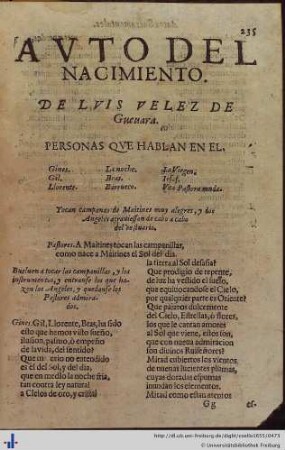 235
AVTO DEL
NACIMIENTO.
DE LVIS VELEZ DE
Gueuara.
PERSONAS QVE HABLAN EN EL.
Gines. La noche. La Virgen.
Gil. Bras. Iosef.
Llorente. Borrueco. Vna Pastora muda.
Tocan campanas de Maitines muy alegres, y los
Angeles atrauiessan de cabo a cabo
del vestuario.
Pastores. A Maitines tocan las campanillas,
como nace a Maitines el Sol del dia.
Bueluen a tocar las campanillas, y los
instrumentos, y entranse los que ha-
zen los Angeles, y quedanse los
Pastores admira-
dos.
Gines. Gil, Llorente, Bras, ha sido
ello que hemos visto sueño,
ilusion, palmo, ò empeño
de la vida, del sentido?
Que no entendido
es el del Sol, y del dia,
que en medio la noche fria,
tan contra ley natural
a Cielos de oro, y cristal
la tierra al Sol desafia?
Que prodigio de repente,
de luz ha vestido el suelo,
que equiuocandose el Cielo,
por qualquier parte es Oriente?
Que paxaros dulcemente
del Cielo, Estrellas, ò flores,
los que le cantan amores
al Sol que viene, ellos son,
que con nueua admiracion
son diuinos Ruiseñores?
Mirad cubiertos los vientos
de nueuas lucientes plumas,
cuyas doradas espumas
inundan los elementos.
Mirad como essas atentos
Gg es-
http://dl.ub.uni-freiburg.de/diglit/coello1655/0473
© Universitätsbibliothek Freiburg